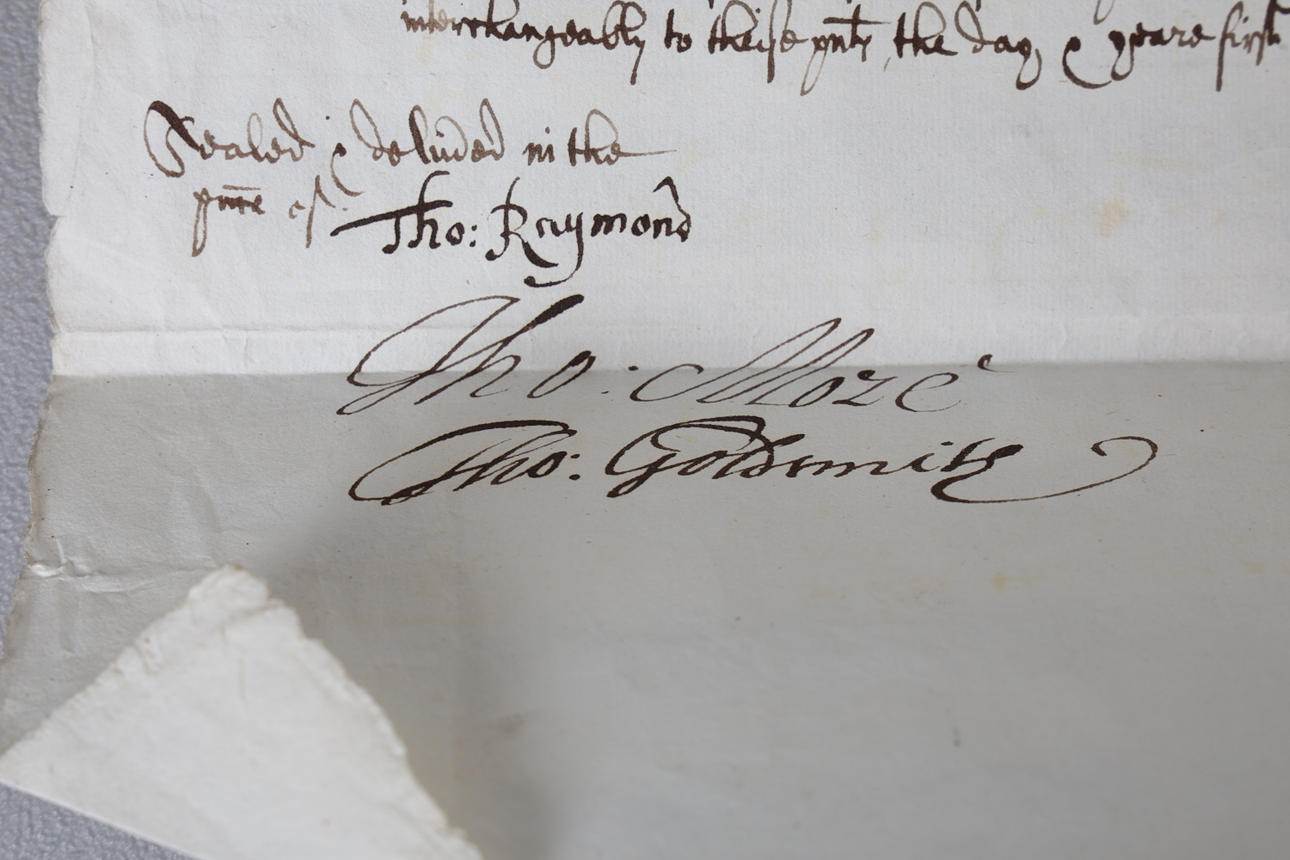 interchangeably to theise pnts the day & yeare first
Sealed & deliued in the
pnce of
Tho: Raymond
Tho: More
Tho: Goldsmith